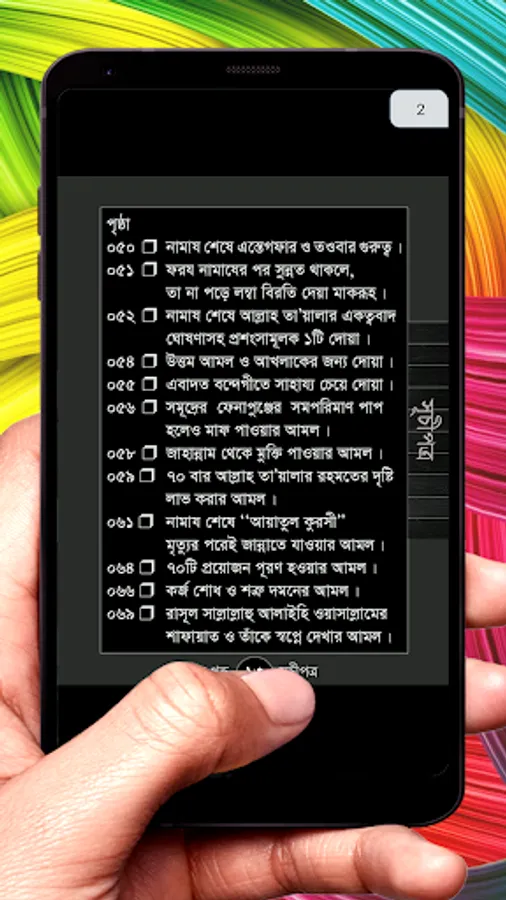 2
পৃষ্ঠা
০৫০ নামায শেষে এস্তেগফার ও তওবার গুরুত্ব।
০৫১ ফরয নামাযের পর সুন্নত থাকলে,
তা না পড়ে লম্বা বিরতি দেয়া মাকরূহ।
০৫২ নামায শেষে আল্লাহ তা'য়ালার একত্ববাদ
ঘোষণাসহ প্রশংসামূলক ১টি দোয়া।
০৫৪ উত্তম আমল ও আখলাকের জন্য দোয়া।
০৫৫ এবাদত বন্দেগীতে সাহায্য চেয়ে দোয়া।
০৫৬ সমূদ্রের ফেনাপুঞ্জের সমপরিমাণ পাপ
হলেও মাফ পাওয়ার আমল।
০৫৮ জাহান্নাম থেকে মুক্তি পাওয়ার আমল।
০৫৯ ৭০ বার আল্লাহ তা'য়ালার রহমতের দৃষ্টি
লাভ করার আমল।
০৬১ নামায শেষে “আয়াতুল কুরসী”
মৃত্যুর পরেই জান্নাতে যাওয়ার আমল।
০৬৪ ৭০টি প্রয়োজন পূরণ হওয়ার আমল।
০৬৬ কর্জ শোধ ও শত্রু দমনের আমল।
০৬৯ রাসূল সাল্লাল্লাহু আলাইহি ওয়াসাল্লামের
শাফায়াত ও তাঁকে স্বপ্নে দেখার আমল।
সূচীপত্র